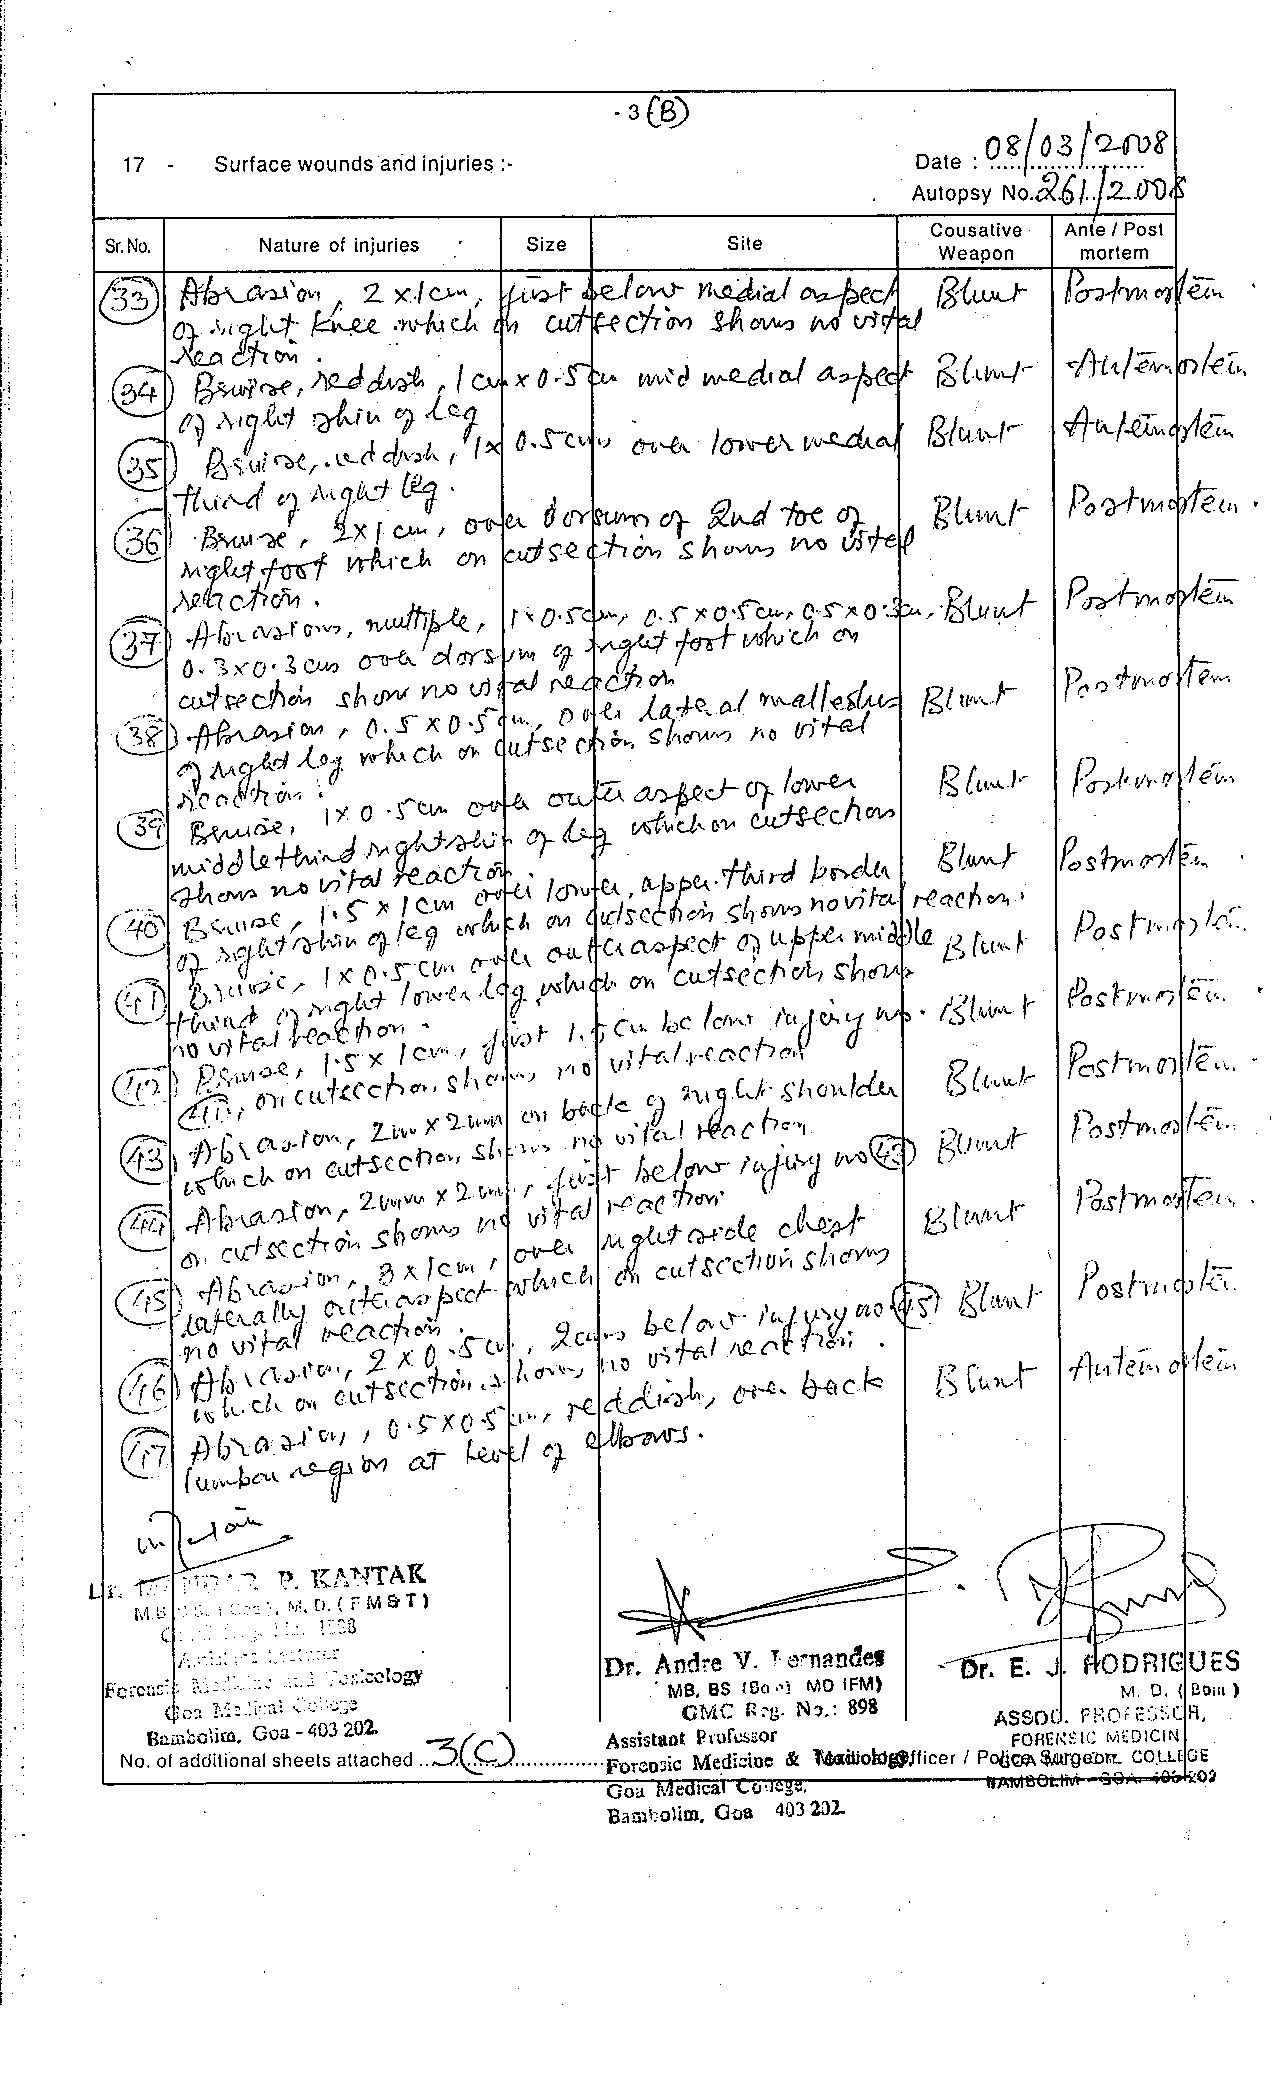 - 3 (B)
17 - Surface wounds and injuries :- Date : 08/03/2008
Autopsy No. 261/2008
Sr. No. Nature of injuries Size Site Cousative Weapon Ante / Post mortem
(33) Abrasion, 2 x 1 cm, just below medial aspect Blunt Postmortem
of right knee which on cutsection shows no vital
reaction.
(34) Bruise, reddish, 1 cm x 0.5 cm mid medial aspect Blunt Antemortem
of right shin of leg
(35) Bruise, reddish, 1 x 0.5 cms over lower medial Blunt Antemortem
third of right leg.
(36) Bruise, 2 x 1 cm, over dorsum of 2nd toe of Blunt Postmortem.
right foot which on cutsection shows no vital
reaction.
(37) Abrasions, multiple, 1 x 0.5 cm, 0.5 x 0.5 cm, 0.5 x 0.3 cm, Blunt Postmortem
0.3 x 0.3 cms over dorsum of right foot which on
cutsection show no vital reaction
(38) Abrasion, 0.5 x 0.5 cm, over lateral malleolus Blunt Postmortem
of right leg which on cutsection shows no vital
reaction.
(39) Bruise, 1 x 0.5 cm over outer aspect of lower Blunt Postmortem
middle third right shin of leg which on cutsection
shows no vital reaction
(40) Bruise, 1.5 x 1 cm over lower, upper third border Blunt Postmortem
of right shin of leg which on cutsection shows no vital reaction.
(41) Bruise, 1 x 0.5 cm over outer aspect of upper middle Blunt Postmortem
third of right lower leg which on cutsection shows
no vital reaction.
(42) Bruise, 1.5 x 1 cm, just 1.5 cm below injury no. Blunt Postmortem
(41), on cutsection shows no vital reaction
(43) Abrasion, 2 mm x 2 mm on back of right shoulder Blunt Postmortem
which on cutsection shows no vital reaction
(44) Abrasion, 2 mm x 2 mm, just below injury no (43) Blunt Postmortem
on cutsection shows no vital reaction
(45) Abrasion, 3 x 1 cm, over right side chest Blunt Postmortem.
laterally outer aspect which on cutsection shows
no vital reaction.
(46) Abrasion, 2 x 0.5 cm, 2 cms below injury no (45) Blunt Postmortem
which on cutsection shows no vital reaction.
(47) Abrasion, 0.5 x 0.5 cm, reddish, over back Blunt Antemortem
lumbar region at level of elbows.
P. KANTAK
M. D. (F M & T)
Assistant Lecturer
Forensic Medicine and Toxicology
Goa Medical College
Bambolim, Goa - 403 202.
Dr. Andre V. Fernandes
MB, BS (Bom) MD (FM)
GMC Reg. No.: 898
Assistant Professor
Forensic Medicine & Toxicology
Goa Medical College,
Bambolim, Goa 403 202.
Dr. E. J. RODRIGUES
M. D. (Bom)
ASSOC. PROFESSOR,
FORENSIC MEDICIN
GOA MEDICAL COLLEGE
BAMBOLIM - GOA. 403 202
No. of additional sheets attached 3(C) Medical Officer / Police Surgeon.